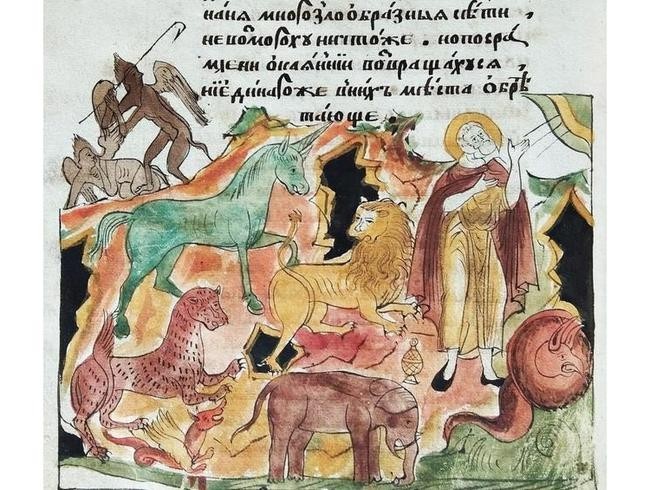 наня многозлообразныя сѣти
невозмогоху ничтоже . нопосра
млени окаяннїи возвращахуся
нїединагоже внихъ мѣста обрѣ
тающе .